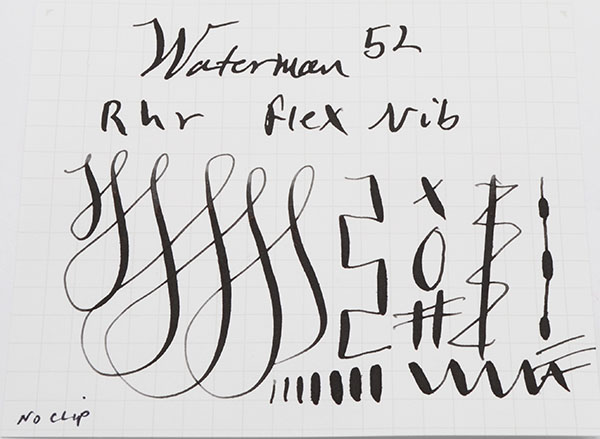 Waterman 52
Rhr Flex Nib
x
O
#
No clip